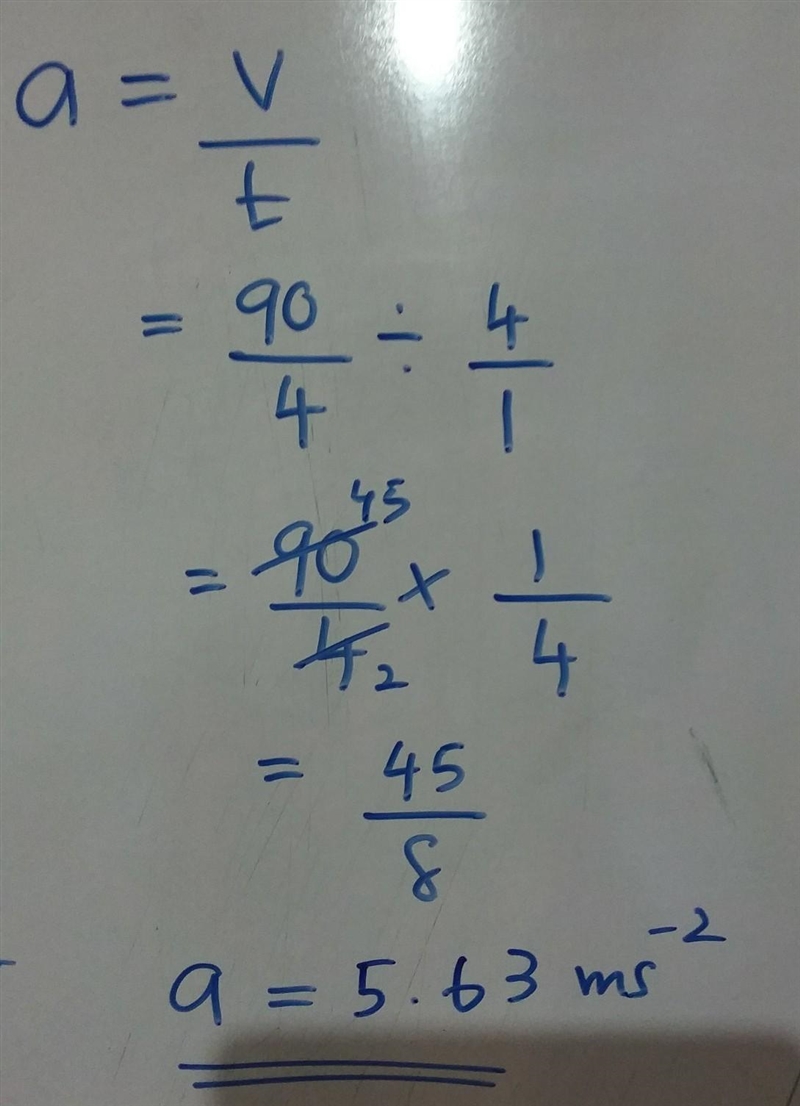 a = v/t
= 90/4 ÷ 4/1
= 90/4 45 2 × 1/4
= 45/8
a = 5.63 ms⁻²